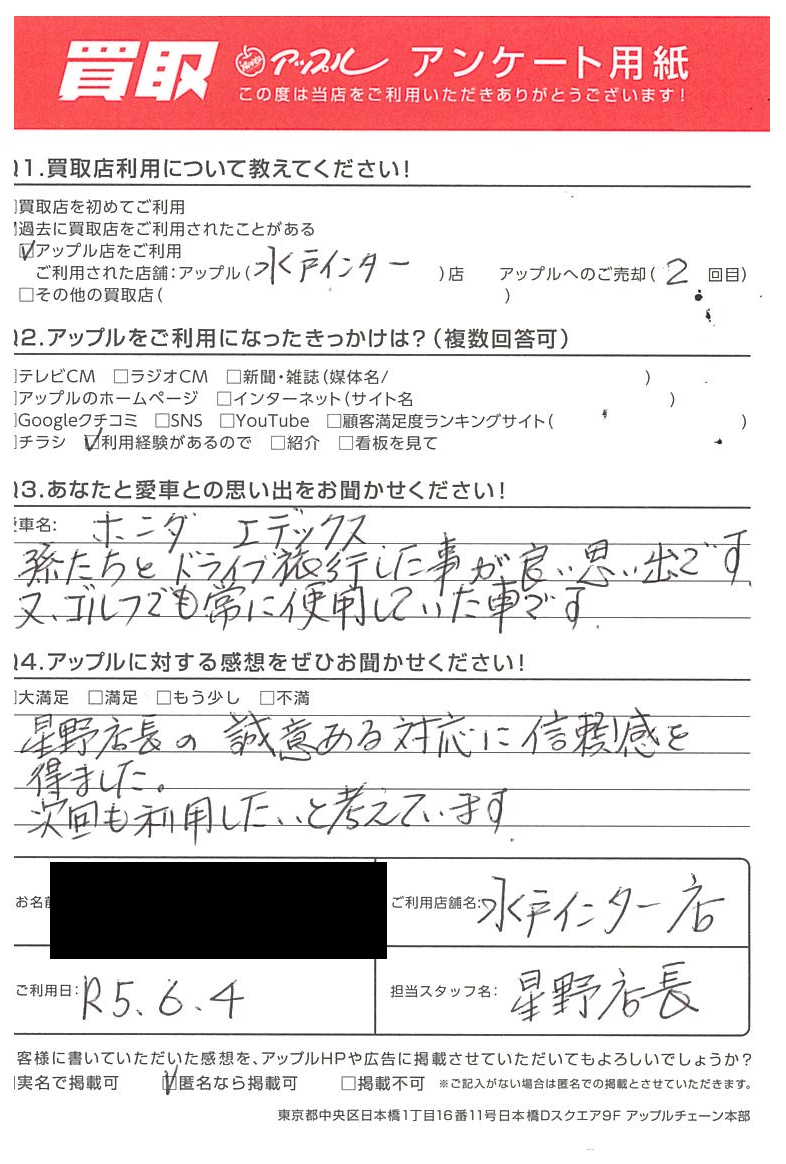 買取 アップル アンケート用紙
この度は当店をご利用いただきありがとうございます!
Q1.買取店利用について教えてください!
□買取店を初めてご利用
過去に買取店をご利用されたことがある
☑アップル店をご利用
ご利用された店舗:アップル(水戸インター)店 アップルへのご売却(2回目)
□その他の買取店( )
Q2.アップルをご利用になったきっかけは?(複数回答可)
□テレビCM □ラジオCM □新聞・雑誌(媒体名/ )
□アップルのホームページ □インターネット(サイト名 )
□Googleクチコミ □SNS □YouTube □顧客満足度ランキングサイト( )
□チラシ ☑利用経験があるので □紹介 □看板を見て
Q3.あなたと愛車との思い出をお聞かせください!
愛車名: ホンダ エデックス
孫たちとドライブ旅行した事が良い思い出です
又、ゴルフでも常に使用していた車です
Q4.アップルに対する感想をぜひお聞かせください!
□大満足 □満足 □もう少し □不満
星野店長の誠意ある対応に信頼感を
得ました。
次回も利用したいと考えています.
お名前
ご利用店舗名:水戸インター店
ご利用日:R5.6.4
担当スタッフ名:星野店長
客様に書いていただいた感想を、アップルHPや広告に掲載させていただいてもよろしいでしょうか?
□実名で掲載可 ☑匿名なら掲載可 □掲載不可 ※ご記入がない場合は匿名での掲載とさせていただきます。
東京都中央区日本橋1丁目16番11号日本橋Dスクエア9F アップルチェーン本部